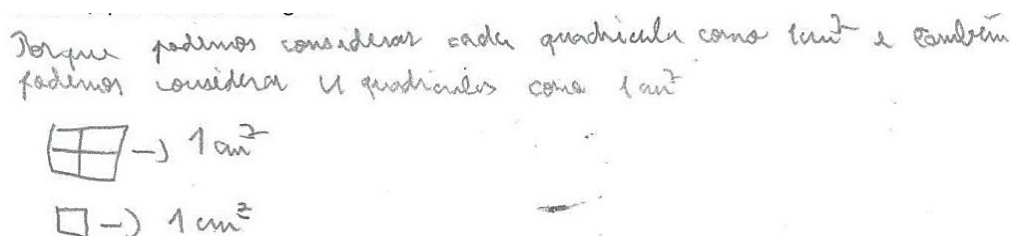 Porque podemos considerar cada quadricula como 1cm² e também
podemos considerar 4 quadriculas como 1cm²
→ 1cm²
→ 1cm²